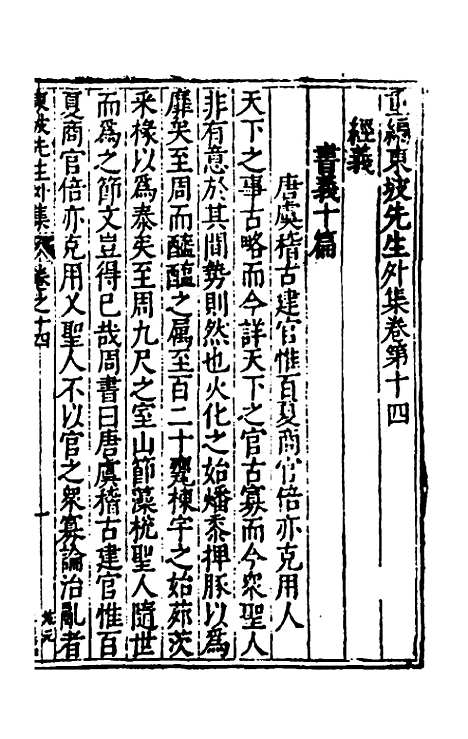 重編東坡先生外集卷第十四
經義
書義十篇
唐虞稽古建官惟百夏商官倍亦克用人
天下之事古略而今詳天下之官古寡而今衆聖人
非有意於其間勢則然也火化之始燔黍捭豚以為
靡矣至周而醯醢之屬至百二十甕棟宇之始茆茨
采椽以為泰矣至周九尺之室山節藻梲聖人隨世
而為之節文豈得已哉周書曰唐虞稽古建官惟百
夏商官倍亦克用乂聖人不以官之衆寡論治亂者
東坡先生外集 卷之十四 一